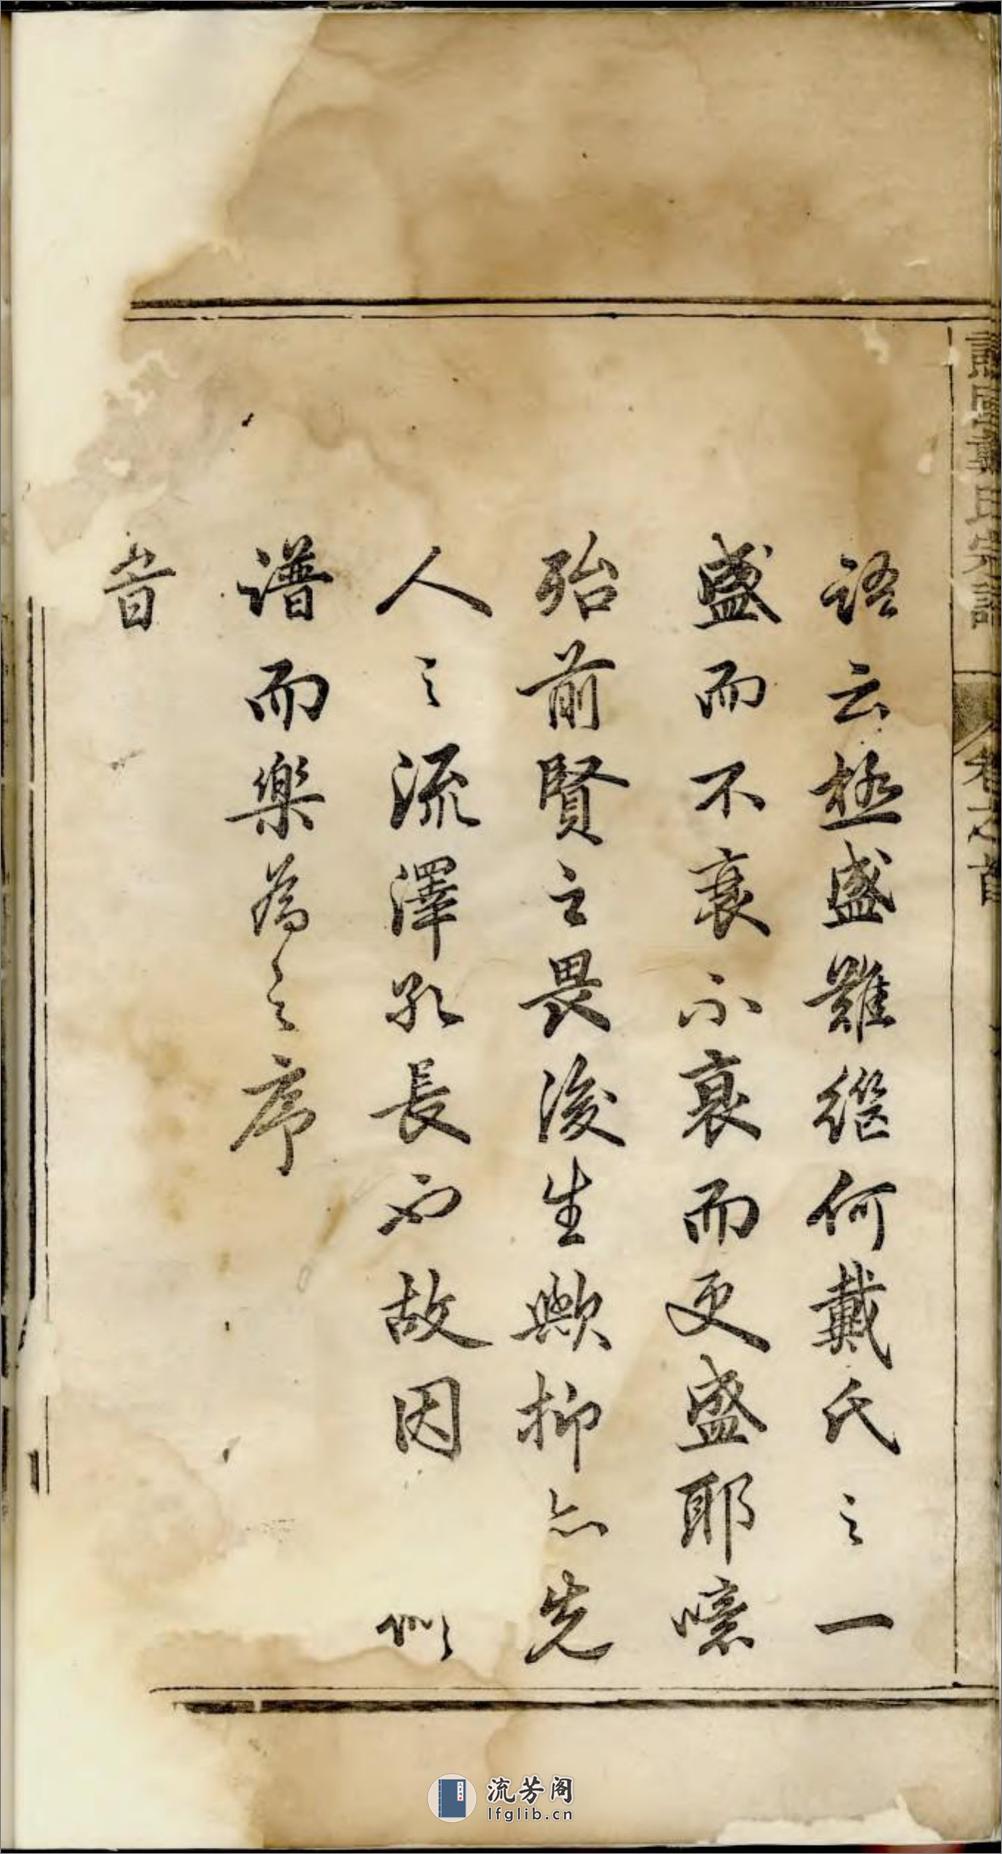 語云極盛難繼何戴氏之一
盛而不衰不衰而更盛耶噫
殆前賢之畏後生歟抑亦先
人之流澤孔長而故因 似
譜而樂為之序
旹
戴氏宗譜
卷之首
流芳阁
lfglib.cn